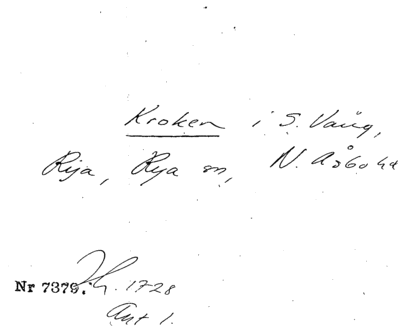 Kroken i S. Väng,
Rija, Rya sn, N. Åsbo hd
Nr 7379. Jb. 1728
Ant 1.